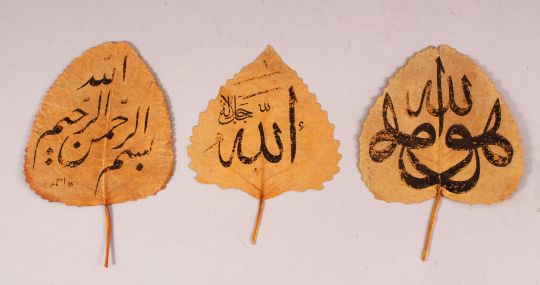 بسم الله الرحمن الرحيم
الله جل جلاله
هو الله